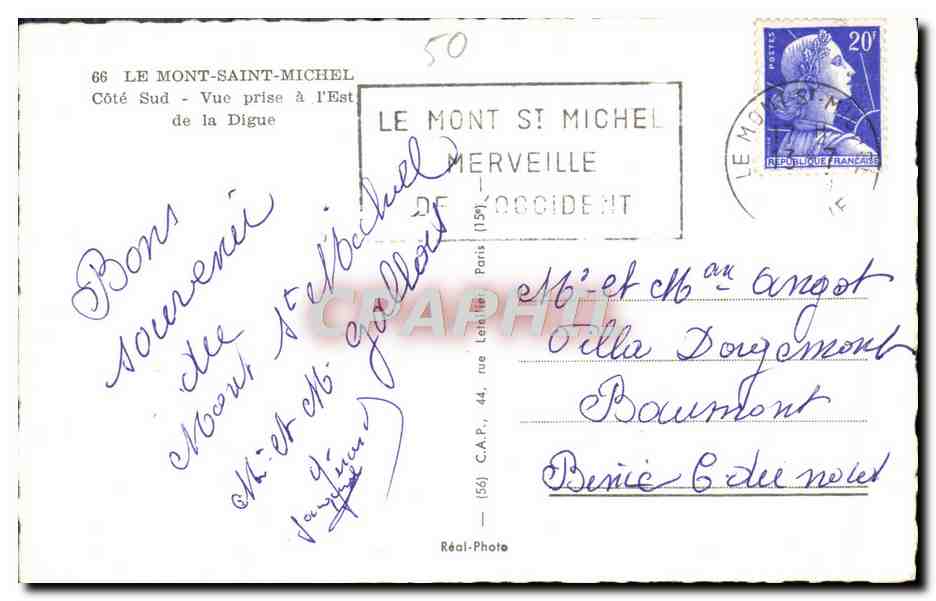 50
66 LE MONT-SAINT-MICHEL
Côté Sud - Vue prise à l'Est
de la Digue
LE MONT ST MICHEL
MERVEILLE
DE L'OCCIDENT
POSTES
20F
REPUBLIQUE FRANCAISE
LE MONT-ST-M
Bons
souvenir
du
Mont St Michell
Mr et M Gallois
gérard
(56) C.A.P., 44, rue Letellier, Paris (15e)
Réal-Photo
CRAPHIL
Mr et Mme Angot
Villa Dorgemont
Baumont
Binic C du nord